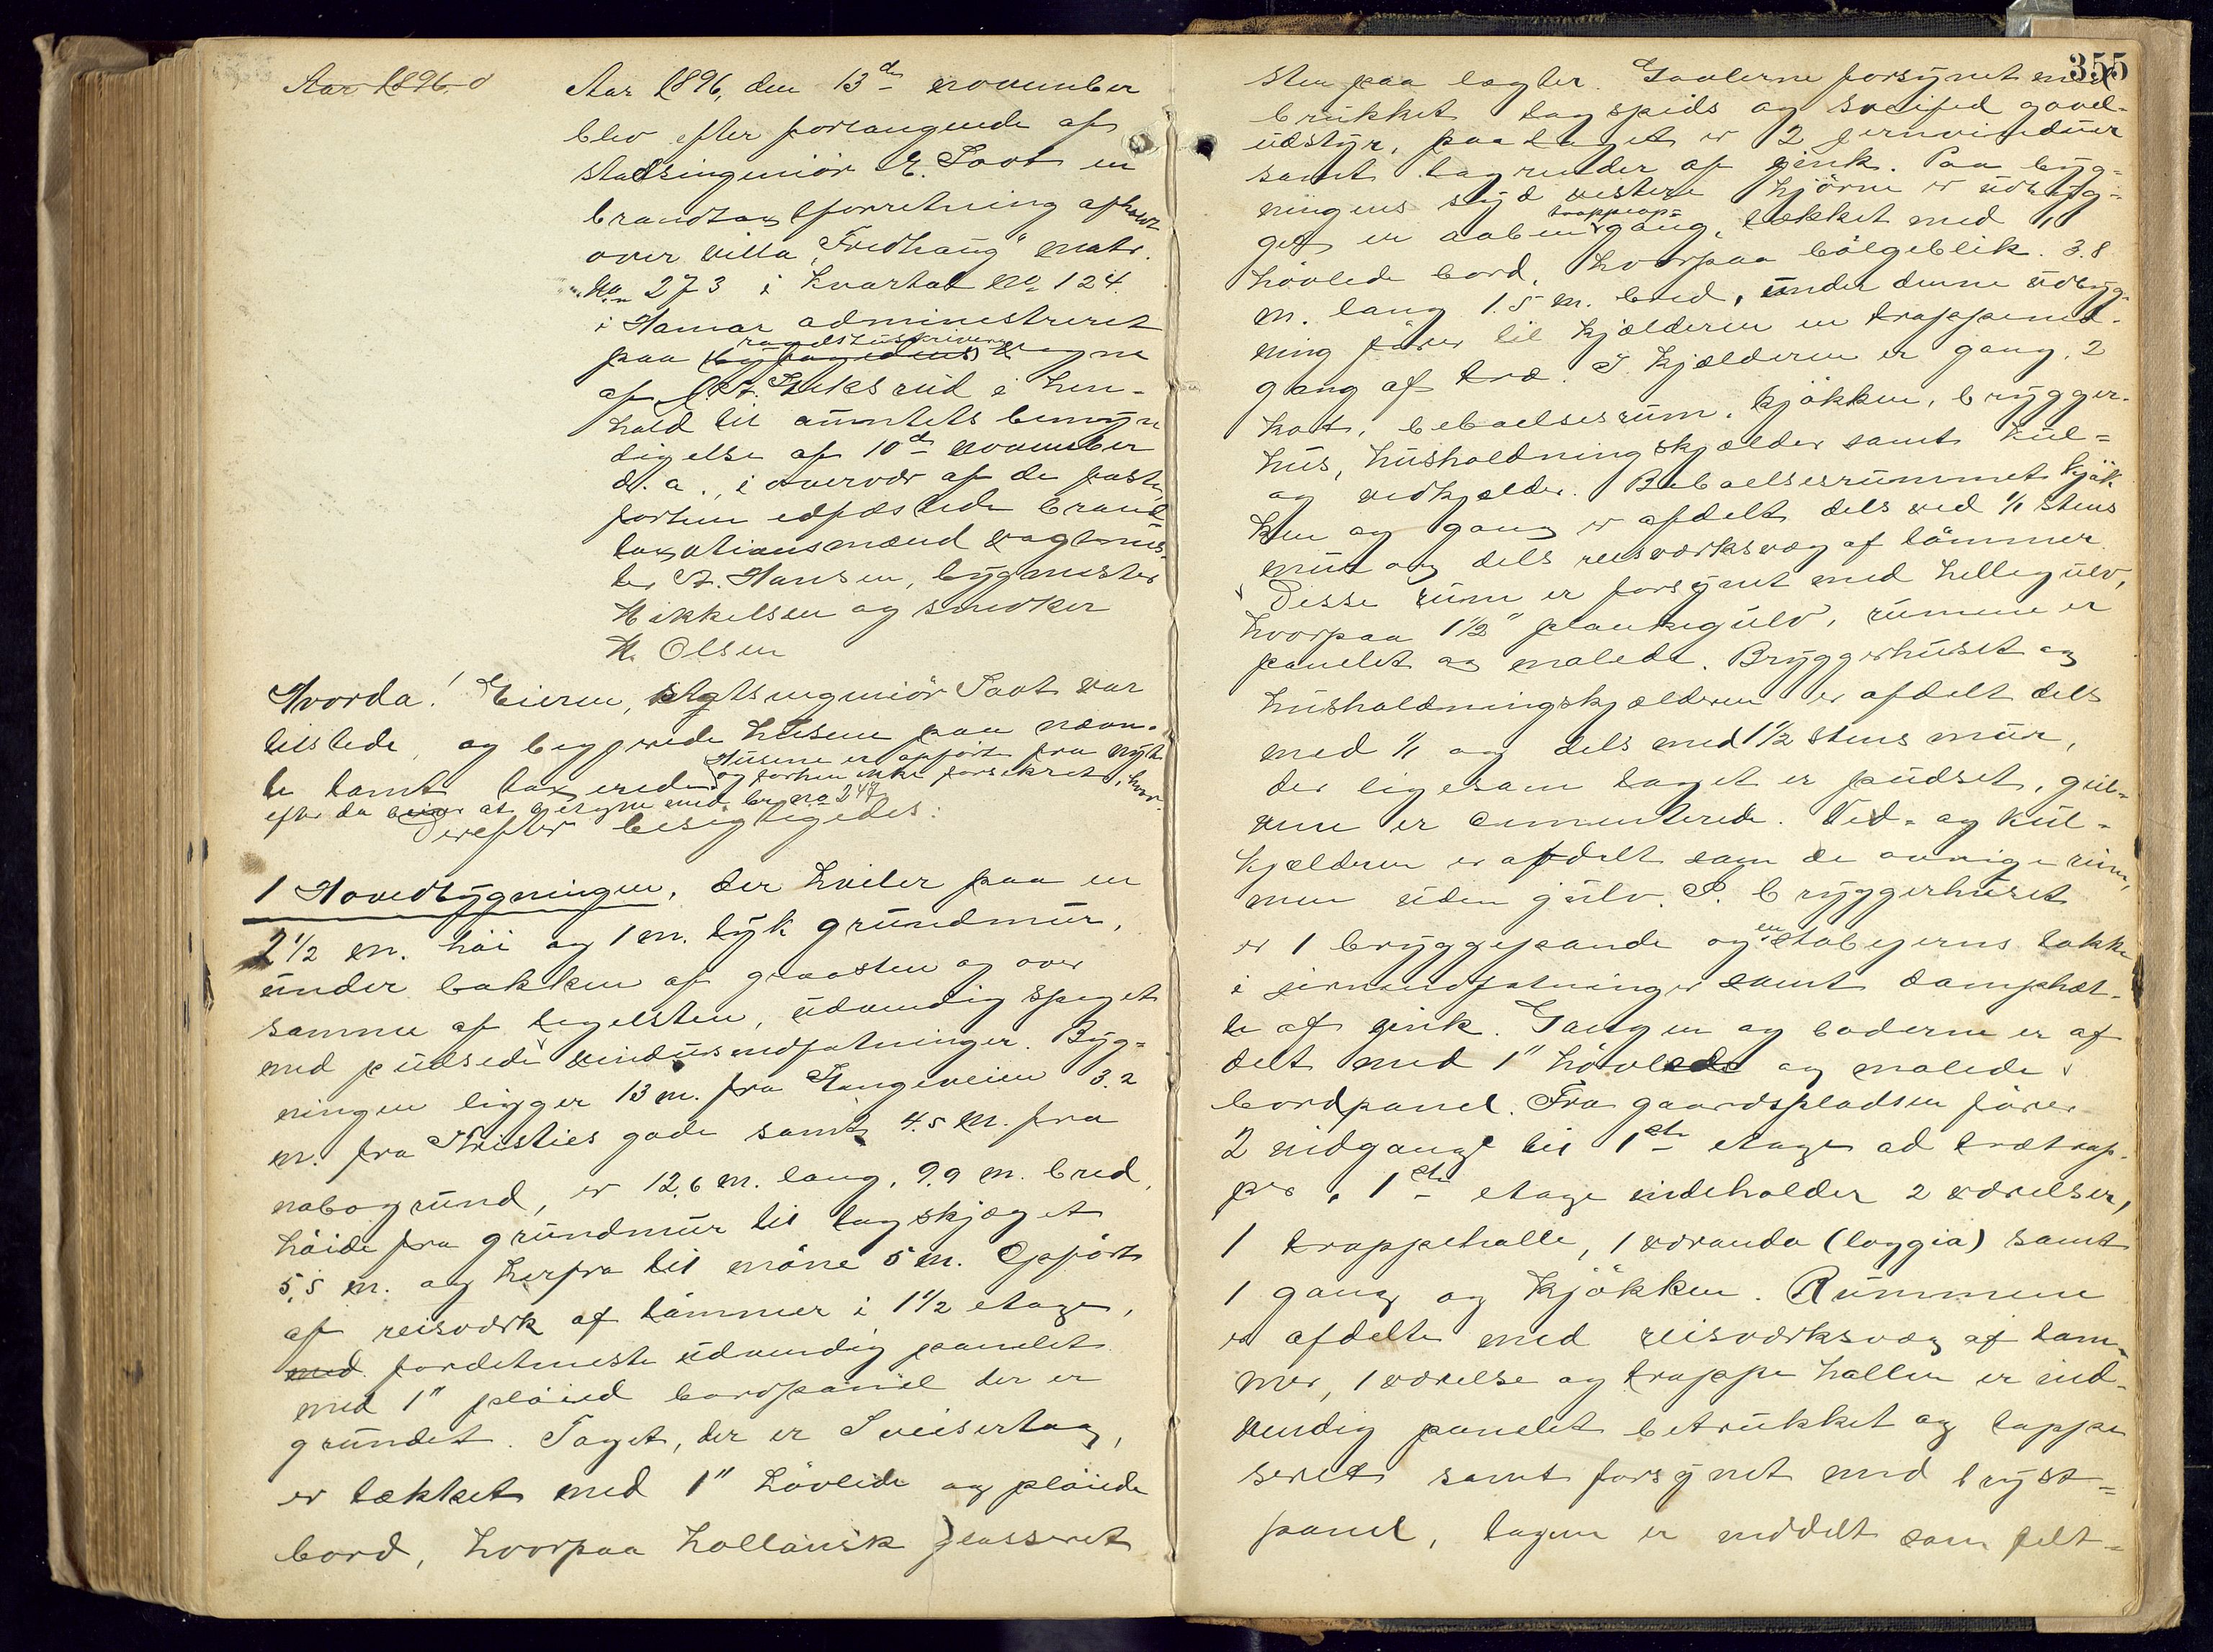 Aar 1896. d
Aar 1896, den 13de november
blev efter forlangende af
stadsingeniör E. Soot en
brandtaxtforretning afholdt
over villa "Fredhaug" matr.
No. 273 i Kvartal no 124
i Hamar administreret
raadstuskriverens
paa byfogedens vegne
af Huksrud i hen-
hold til amtets bemyn
digelse af 10de november
d. a., i overvær af de faste,
forhen edfæstede brand
taxationsmænd vagtmes-
ter A. Hansen, bygmester
Mikkelsen og snedker
M. Olsen
Hvorda! Eieren, stadsingeniör Soot var
tilstede, og begjærede husene paa nævn-
te tomt taxerede
Husene er opfört fra nyt
og forhen ikke forsikret, hvor-
efter da at betegne med br. no 247
Derefter besigtigedes:
1 Hovedbygningen, der hviler paa en
2 1/2 m. höi og 1 m. tyk grundmur,
under bakken af graasten og over
samme af teglsten, udvendig speget
med pudsede vinduesindfatninger. Byg-
ningen ligger 13 m. fra Stangeveien 3.2
m. fra Kristies gade samt 4.5 m. fra
nabogrund, er 12,6 m. lang, 9.9 m. bred,
höide fra grundmur til tagskjægget
5,5 m. og herfra til möne 5 m. Opfört
af reisværk af tömmer i 1 1/2 etage,
med fordetmeste udvendig panelet
med 1" plöiied bordpanel der er
grundet. Taget, der er Sveisertag,
er tækket med 1" hövlede og plöiede
bord, hvorpaa hollansk glasseret
355
sten paa lægter. Gavlerne forsynet med
brukket tagspids og sveifed gavl-
udstyr, paa taget er 2 jernvinduer
samt tagrender af zink. Paa byg-
ningens syd vestre hjörne er udbyg-
trappeop-
get en aaben gang, tækket med 1"
hövlede bord, hvorpaa bölgeblik. 3.8
m. lang 1.5 m. bred, under denne udbyg-
ning förer til kjælderen en trappened-
gang af træ. I kjælderen er gang, 2
kot, beboelsesrum, kjökken, brygger-
hus, husholdningskjælder samt kul-
og vedkjælder. Beboelsesrummet kjök
ken og gang er afdelt dels ved 1/1 stens
mur og dels reisværksvæg af tömmer
Disse rum er forsynet med hellegulv,
hvorpaa 1 1/2" plankegulv, rumene er
panelet og malede. Bryggerhuset og
husholdningskjælderen er afdelt dels
med 1/1 og dels med 1 1/2 stens mur,
der ligesom taget er pudset, gul-
vene er cementerede. Ved- og kul-
kjælderen er afdelt som de övrige rum,
men uden gulv. I bryggerhuset
er 1 bryggepande og en stöbejerns takke
i jernindfatninger samt damphæt-
te af zink. Gangen og boderne er af
delt med 1" hövlede og malede
bordpanel. Fra gaardspladsen förer
2 indgange til 1ste etage ad trætrap-
per. 1ste etage indeholder 2 værelser,
1 trappehalle, 1 veranda (loggia) samt
1 gang og kjökken. Rummene
er afdelte med reisværksvæg af töm-
mer, 1 værelse og trappehallen er ind-
vendig panelet betrukket og tappe
seret samt forsynet med bryst-
panel, tagene er inddelt som felt-